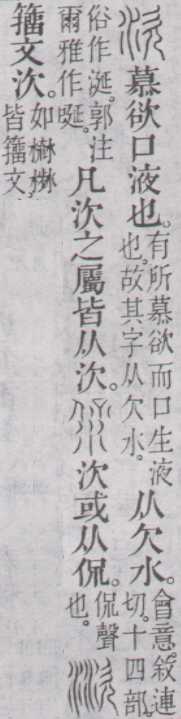 慕欲口液也。有所慕欲而口生液也。故其字从欠水。从欠水。會意。敘連切。十四部。
俗作涎。郭注爾雅作唌。凡㳄之屬皆从㳄。㳄或从侃。侃聲也。
籒文㳄。如皆籒文。